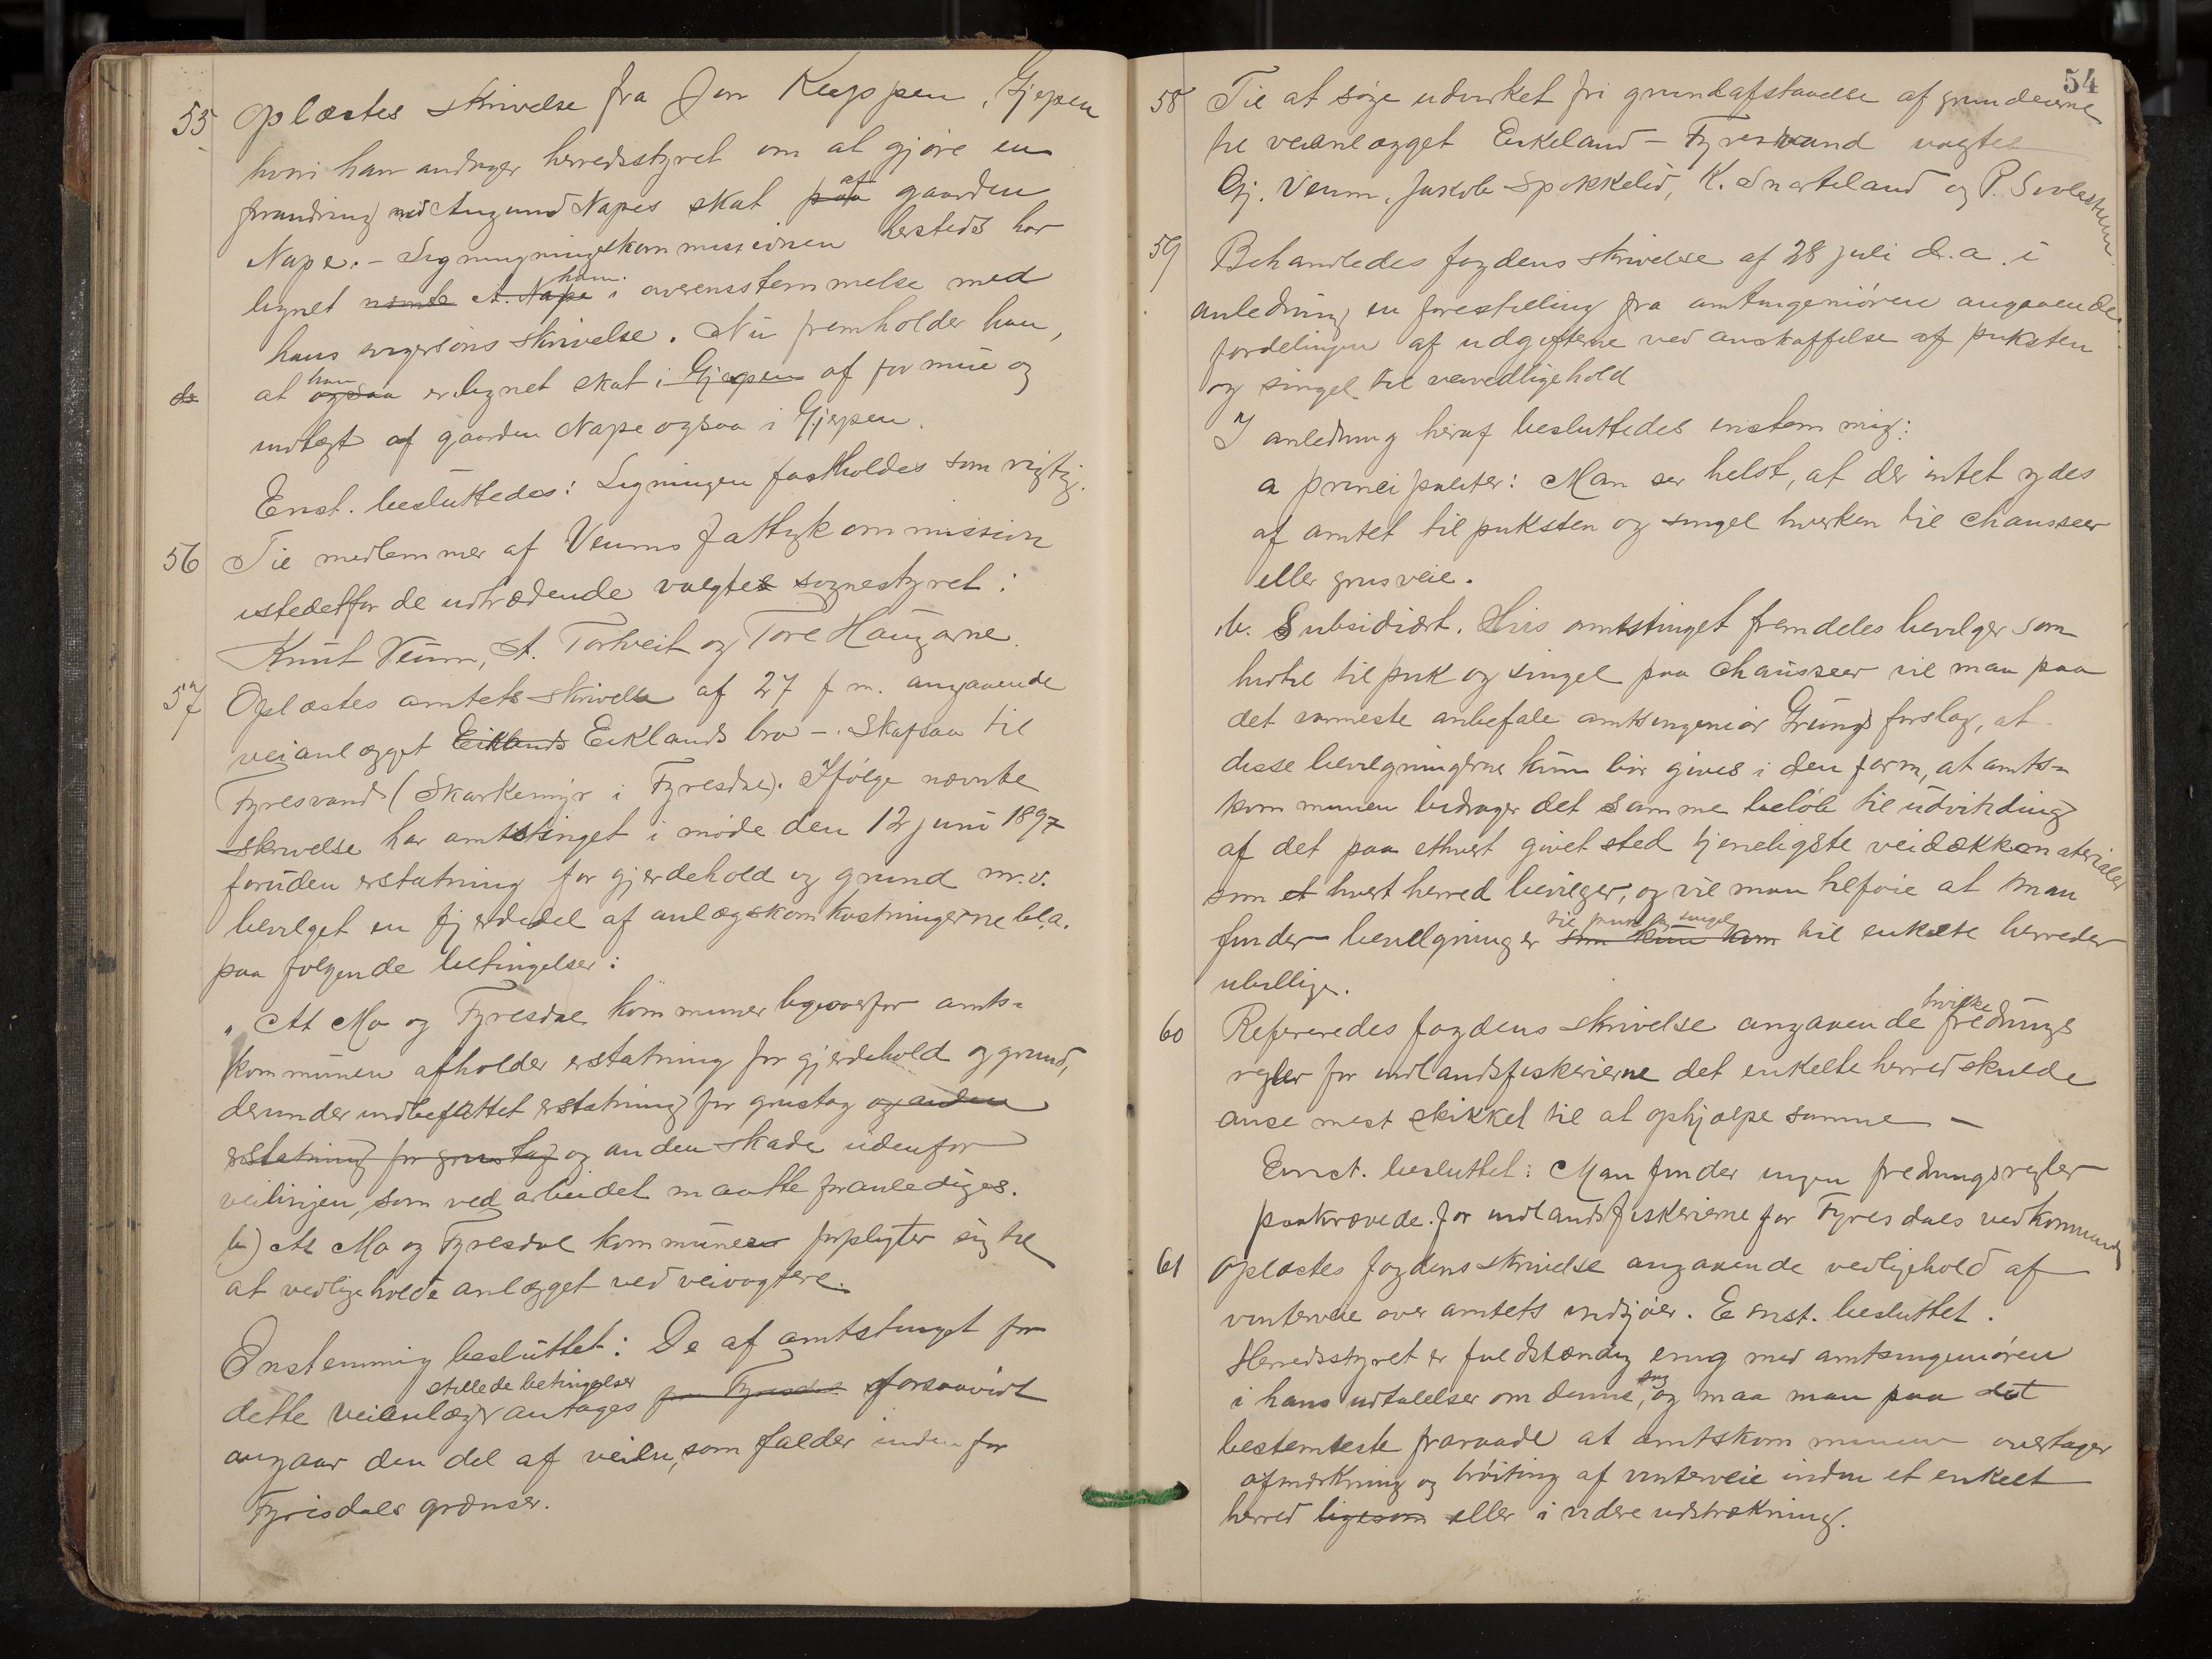 55 Oplæstes skrivelse fra Jon Kleppen, Gjerpen
hvori han andrager herredsstyret om at gjøre en
forandring med Aasmund Napes skat paa af gaarden
Nape. - Ligningskommissionen hersteds har
lignet nævnte A. Nape ham i overensstemmelse med
hans svigersøns skrivelse. Nu fremholder han,
at ogsaa han er lignet skat i Gjerpen af formue og
indtægt af gaarden Nape ogsaa i Gjerpen.
Enst. besluttedes: Ligningen fastholdes som rigtig.
56 Til medlemmer af Veums fattigkommission
istedetfor de udtrædende valgtes sognestyret:
Knut Veum, A. Tortveit og Tore Haugarne.
57 Oplæstes amtets skrivelse af 27 f.m. angaaende
veianlægget Eiklands Eiklands bro - Skafsaa til
Fyresvand (Skarkemyr i Fyresdal). Ifølge nævnte
skrivelse har amtstinget i møde den 12 juni 1897
foruden erstatning for gjerdehold og grund m.v.
bevilget en fjerdedel af anlægskomkostningerne bl.a.
paa følgende betingelser:
"At Mo og Fyresdal kommuner ligeoverfor amts-
kommunen afholder erstatning for gjerdehold og grund,
derunder indbefattet erstatning for grustag og anden
erstatning for grustag og anden skade udenfor
veilinjen, som ved arbeidet maatte foranlediges.
b) At Mo og Fyresdal kommuner forpligter sig til
at vedligeholde anlægget ved veivogtere.
Enstemmig besluttet: De af amtstinget for
dette veianlæg stillede betingelser antages for Fyresdal forsaavidt
angaar den del af veien, som falder inden for
Fyrisdals grænser.
54
58 Til at søge udvirket fri grundafstaaelse af grundeierne
til veianlægget Eikeland - Fyresvand valgtes
Gj. Veum, Jakob Spokkelid, K. Snarteland og P.
59 Behandledes fogdens skrivelse af 28 juli d.a. i
anledning en forestilling fra amtingeniøren angaaende
fordelingen af udgifterne ved anskaffelse af puksten
og singel til veivedligehold
I anledning heraf besluttedes enstemmig:
a principaliter: Man ser helst, at der intet ydes
af amtet til puksten og singel hverken til chausseer
eller grusveie.
b. Subsidiært. Hvis amtstinget fremdeles bevilger som
hidtil til puk og singel paa chausseer vil man paa
det varmeste anbefale amtsingeniør Grungs forslag, at
disse bevilgningerne kun bør gives i den form, at amts-
kommunen bidrager det samme beløb til udvikding
af det paa ethvert givet sted tjeneligste veidækkematerialer
som et hvert herred bevilger, og vil man tilføie at man
finder bevilgninger som kun kom til puk og singel til enkelte herreder
ubillige.
60 Refereredes fogdens skrivelse angaaende hvilke frednings
regler for indlandsfiskerierne det enkelte herred skulde
anse mest skikket til at ophjælpe samme -
Enst. besluttet: Man finder ingen fredningsregler
paakrævede for indlandsfiskerierne for Fyresdals vedkommende
61 Oplæstes fogdens skrivelse angaaende vedligehold af
vinterveie over amtets indsjøer. E enst. besluttet.
Herredsstyret er fuldstændig enig med amtsingeniøren
i hans udtalelser om denne sag, og maa man paa det
bestemteste fraraade at amtskommunen overtager
afmærkning og brøiting af vinterveie inden et enkelt
herred ligesom eller i videre udstrækning.